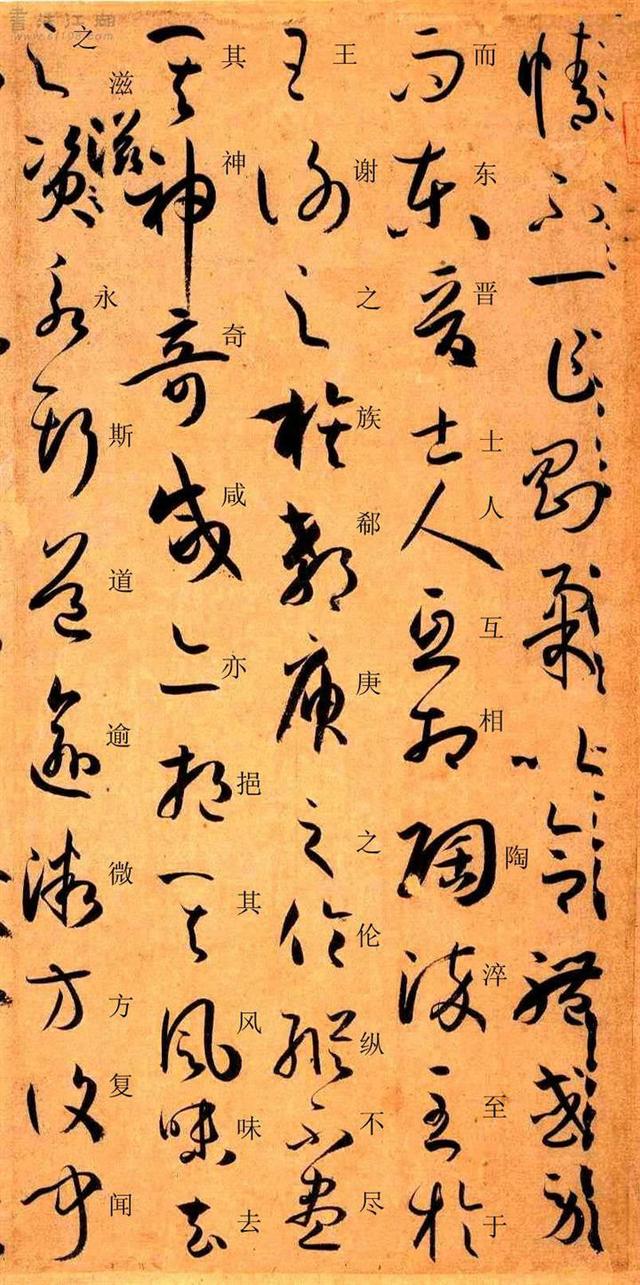 情不一乍剛柔以合體
而东晋士人互相陶淬至于
王谢之族郗庾之伦纵不尽
其神奇咸亦挹其风味去
之滋永斯道逾微方复闻